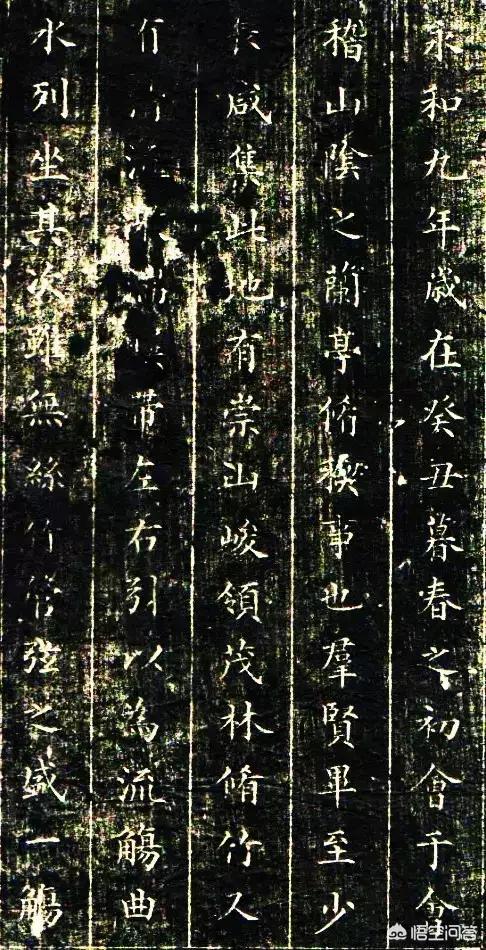 永和九年歲在癸丑暮春之初會于會
稽山陰之蘭亭脩禊事也羣賢畢至少
長咸集此地有崇山峻領茂林脩竹又
流帶左右引以為流觴曲
水列坐其次雖無絲竹管弦之盛一觴
悟空问答